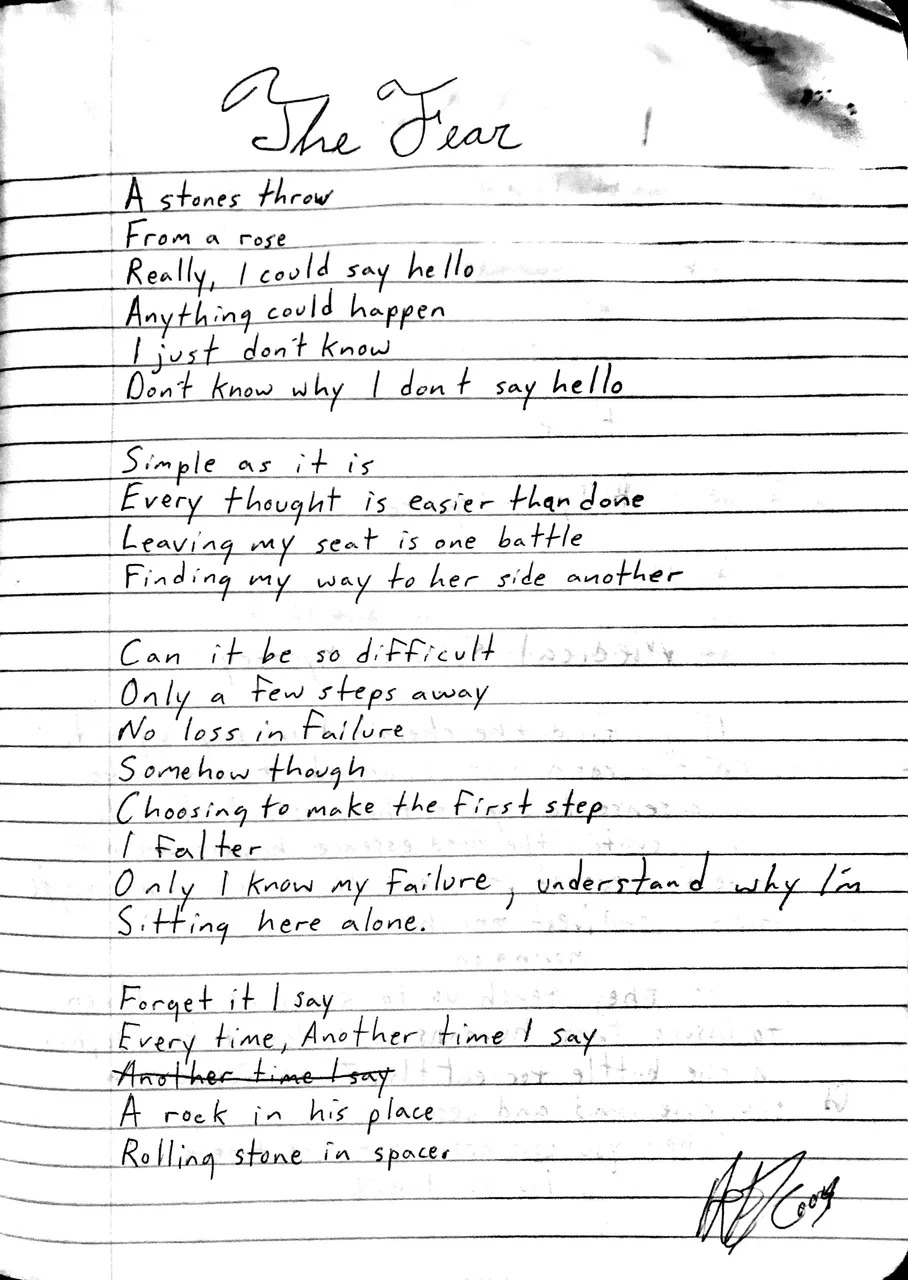 The Fear
A stones throw
From a rose
Really, I could say hello
Anything could happen
I just don't know
Don't know why I don't say hello
Simple as it is
Every thought is easier than done
Leaving my seat is one battle
Finding my way to her side another
Can it be so difficult
Only a few steps away
No loss in failure
Somehow though
Choosing to make the first step
I falter
Only I know my failure, understand why I'm
Sitting here alone.
Forget it I say
Every time, Another time I say
Another time I say
A rock in his place
Rolling stone in spacer